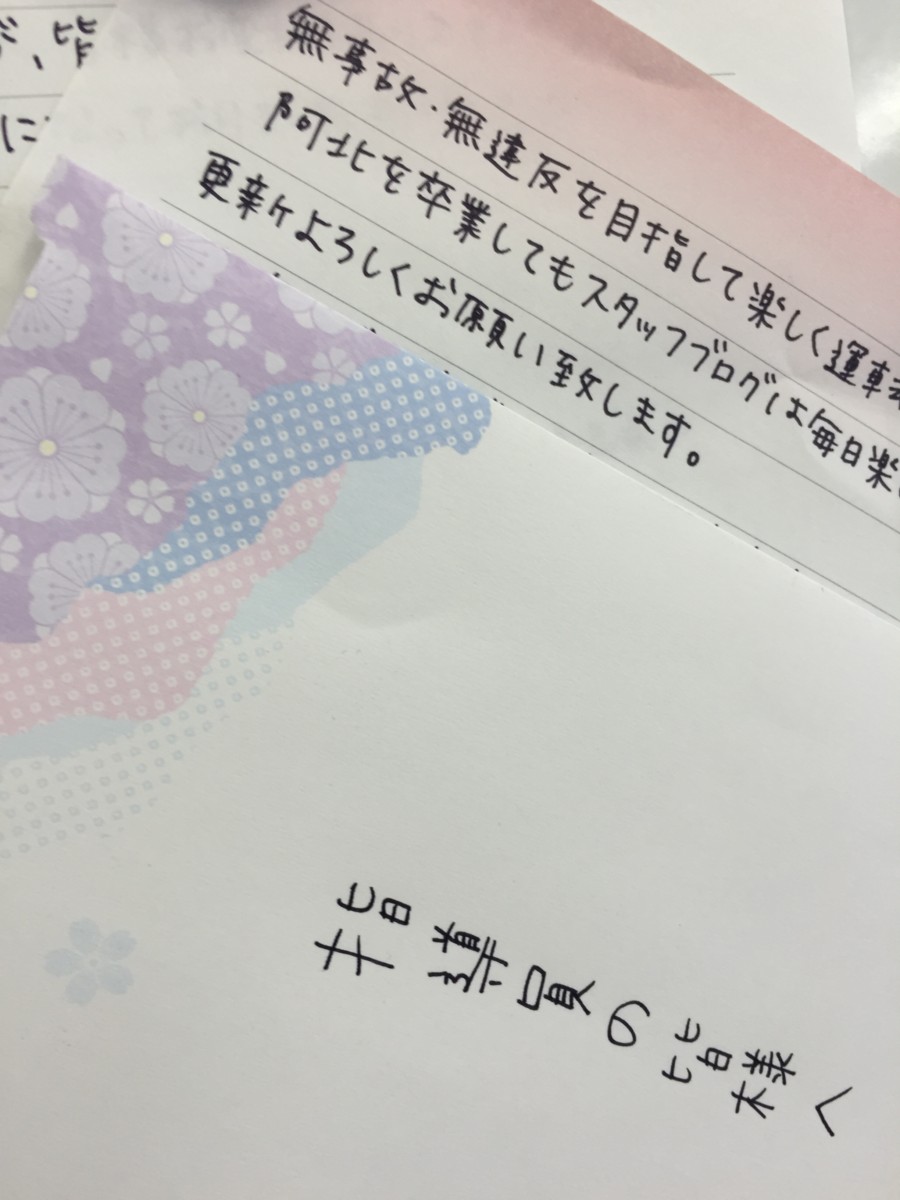 が、皆
に
無事故・無違反を目指して楽しく運転
阿北を卒業してもスタッフブログは毎日楽し
更新ヶよろしくお願い致します。
指導員の皆様へ